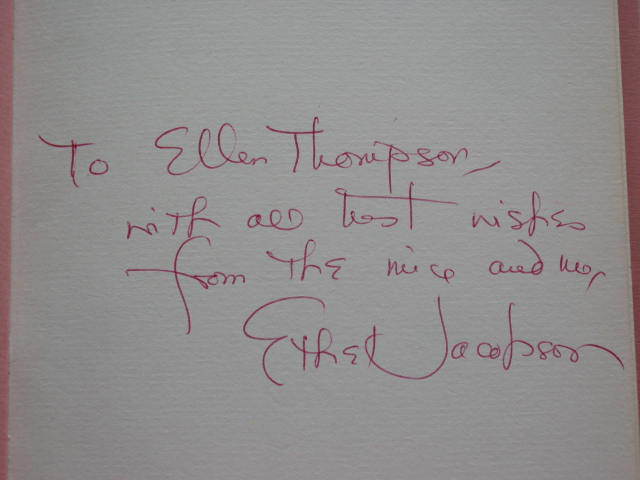 To Ellen Thompson,
with all best wishes
from the mice and me,
Ethel Jacobson